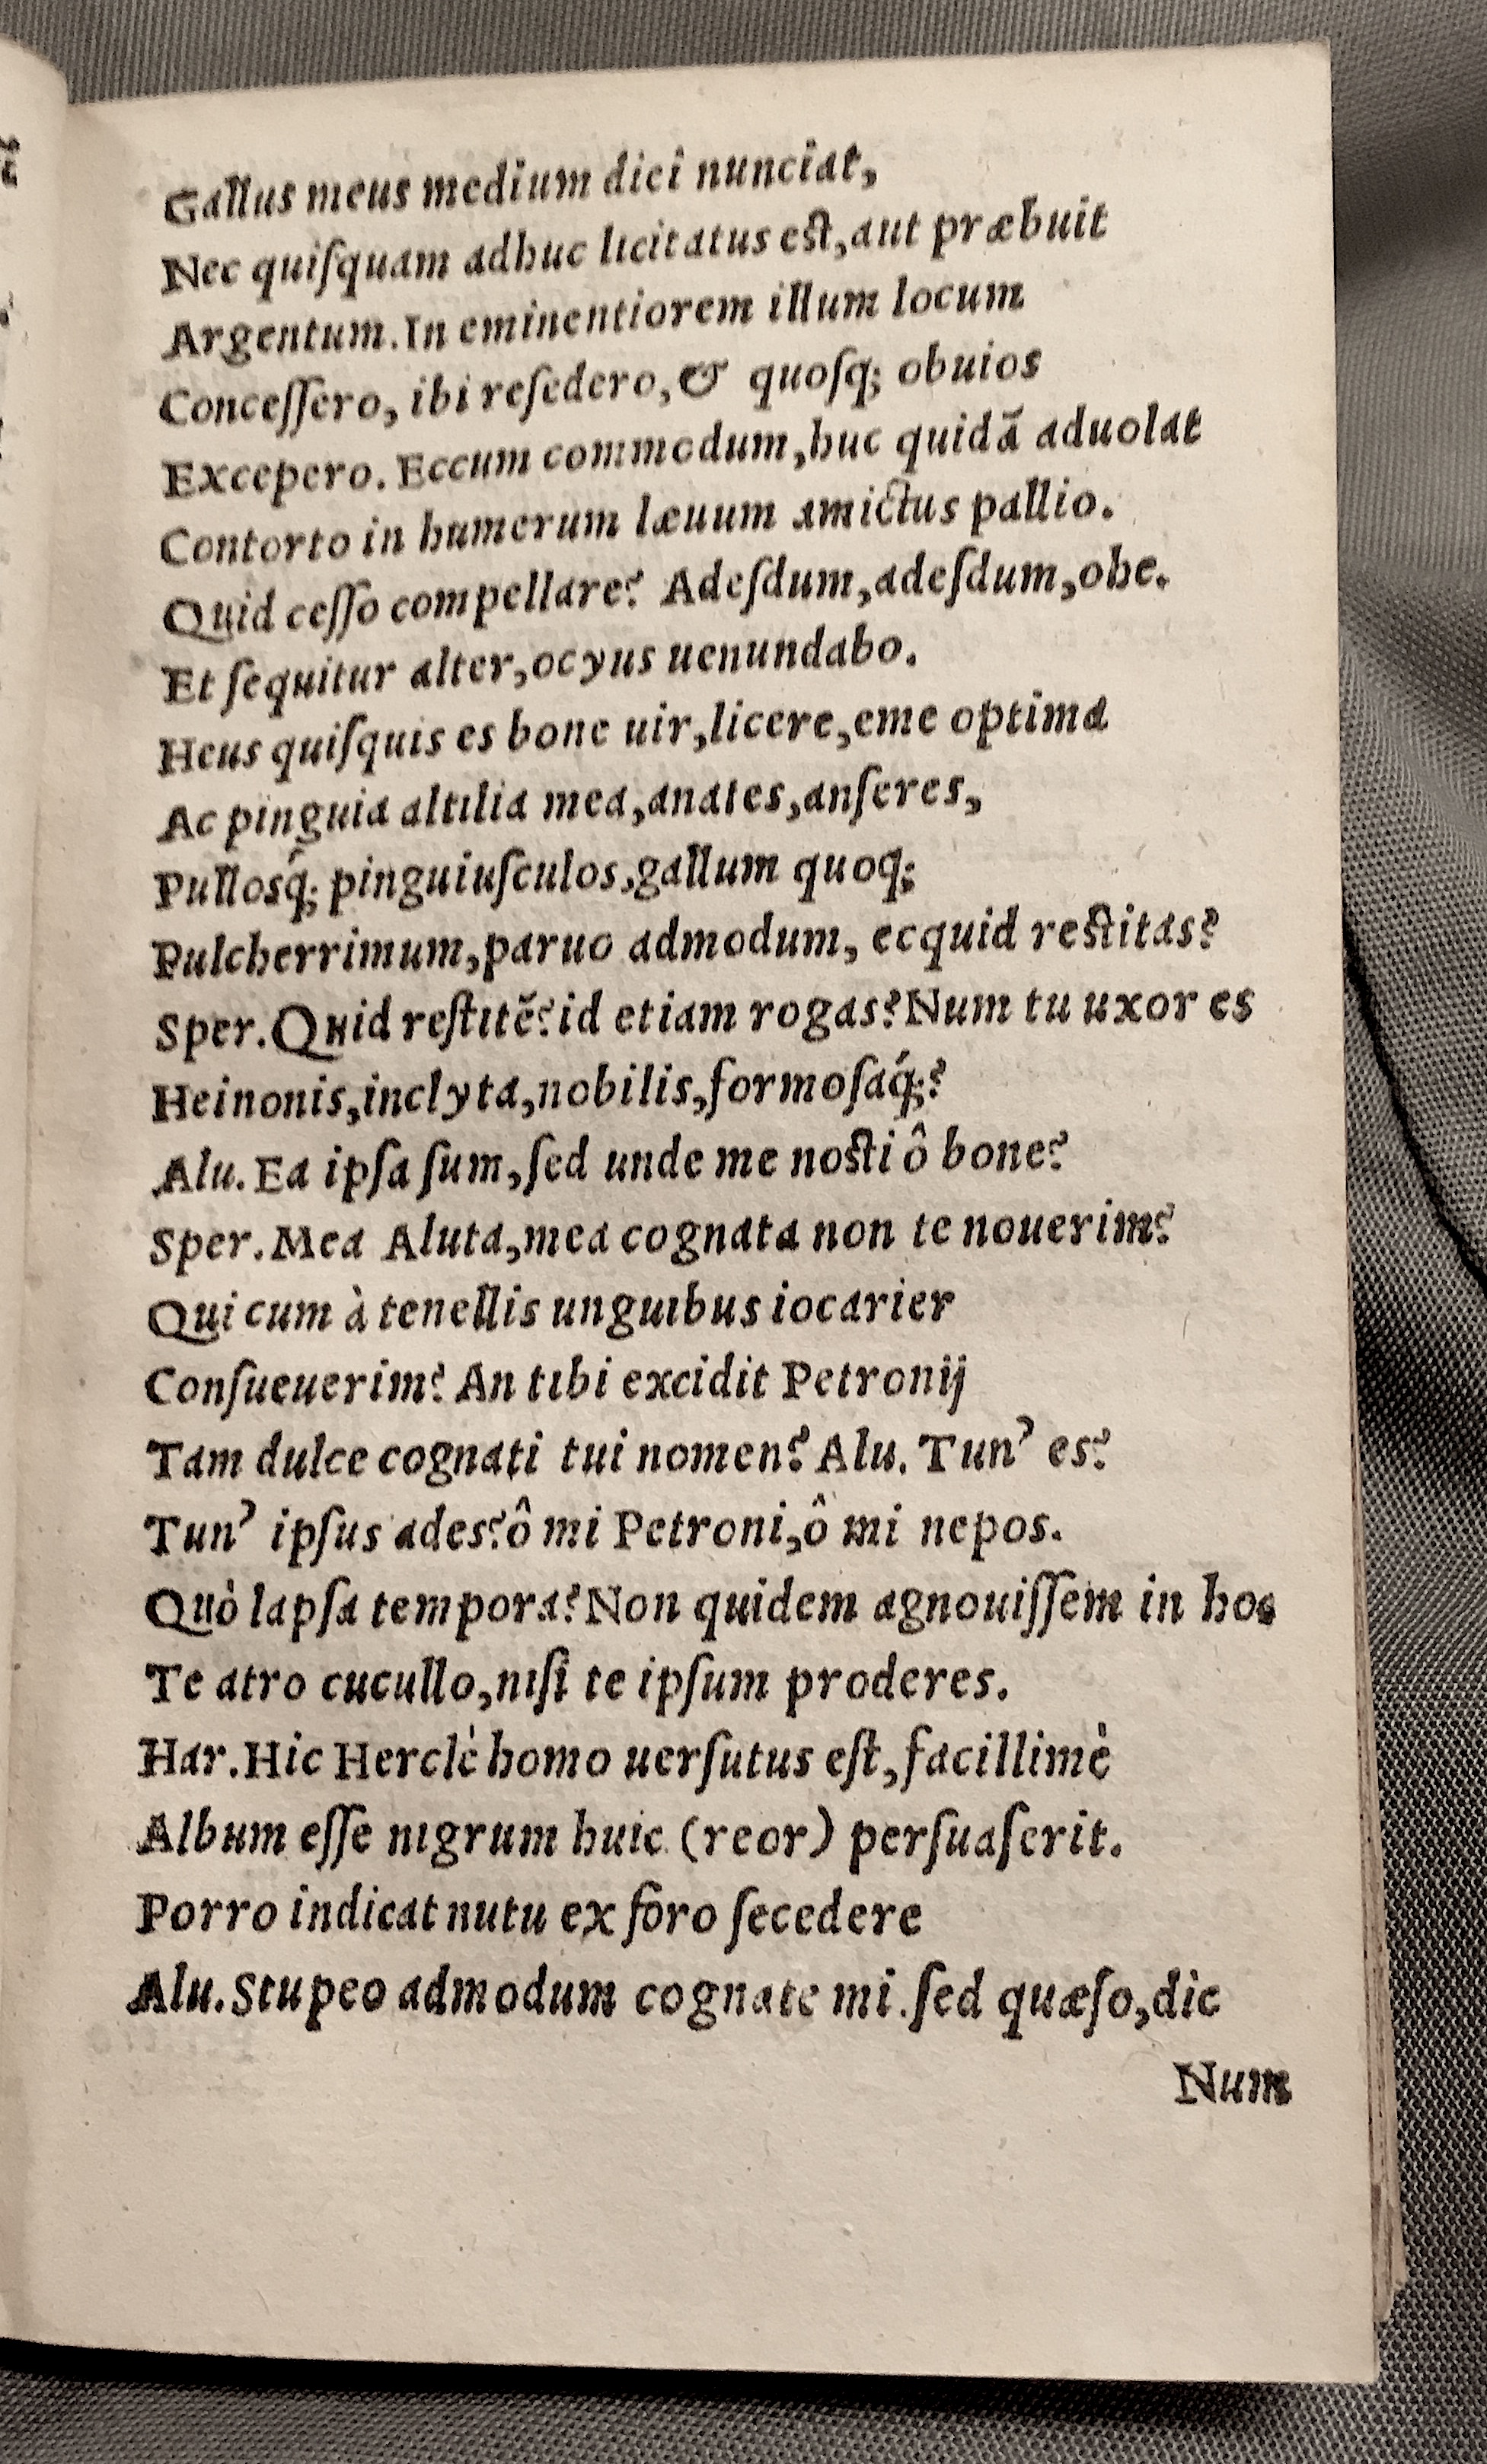 Gallus meus medium diei nunciat,
Nec quiſquam adhuc licitatus eſt,aut præbuit
Argentum.In eminentiorem illum locum
Conceſſero, ibi reſedero,& quoſq; obuios
Excepero. Eccum commodum,huc quidã aduolat
Contorto in humerum læuum amictus pallio.
Quid ceſſo compellare? Adeſdum,adeſdum,ohe.
Et ſequitur alter,ocyus uenundabo.
Heus quiſquis es bone uir,licere,eme optima
Ac pinguia altilia mea,anates,anſeres,
Pulloſq́; pinguiuſculos,gallum quoq;
Pulcherrimum,paruo admodum, ecquid reſtitas?
Sper.Quid reſtitẽ?id etiam rogas?Num tu uxor es
Heinonis,inclyta,nobilis,formoſaq́;?
Alu.Ea ipſa ſum,ſed unde me noſti ô bone?
Sper.Mea Aluta,mea cognata non te nouerim?
Qui cum à tenellis unguibus iocarier
Conſueuerim? An tibi excidit Petronij
Tam dulce cognati tui nomen? Alu. Tun’ es?
Tun’ ipſus ades?ô mi Petroni,ô mi nepos.
Quò lapſa tempora?Non quidem agnouiſſem in hoc
Te atro cucullo,niſi te ipſum proderes.
Har.Hic Herclè homo uerſutus eſt,facillimè
Album eſſe nigrum huic (reor) perſuaſerit.
Porro indicat nutu ex foro ſecedere
Alu.Stupeo admodum cognate mi.ſed quæſo,dic
Num